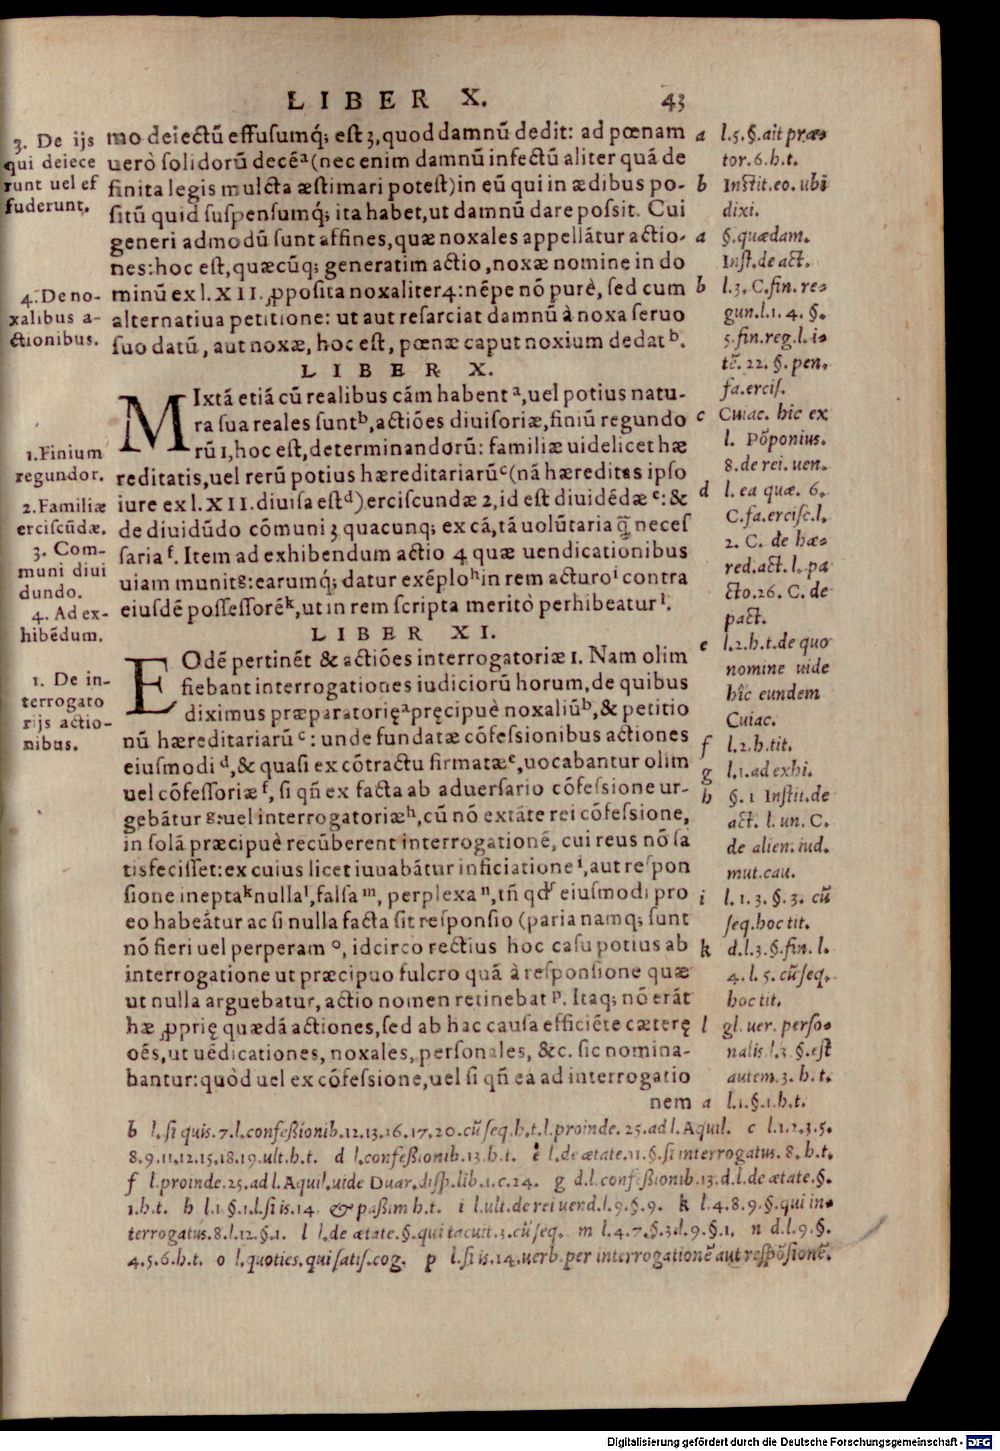 LIBER X. 43
3. De ijs
qui deiece
runt uel ef
fuderunt.
4. De no-
xalibus a-
ctionibus.
mo deiectũ effusumq́; est 3, quod damnũ dedit: ad pœnam
uerò solidorũ decẽᵃ (nec enim damnũ infectũ aliter quá de
finita legis mulcta æstimari potest) in eũ qui in ædibus po-
sitũ quid suspensumq́; ita habet, ut damnũ dare possit. Cui
generi admodũ sunt affines, quæ noxales appellátur actio-
nes: hoc est, quæcũq; generatim actio, noxæ nomine in do
minũ ex l. XII. ꝓposita noxaliter 4: nẽpe nõ purè, sed cum
alternatiua petitione: ut aut resarciat damnũ à noxa seruo
suo datũ, aut noxæ, hoc est, pœnæ caput noxium dedatᵇ.
LIBER X.
1. Finium
regundor.
2. Familiæ
erciscũdæ.
3. Com-
muni diui
dundo.
4. Ad ex-
hibẽdum.
MIxtá etiá cũ realibus cám habentᵃ, uel potius natu-
ra sua reales suntᵇ, actiões diuisoriæ, finiũ regundo
rũ 1, hoc est, determinandorũ: familiæ uidelicet hæ
reditatis, uel rerũ potius hæreditariarũᶜ (ná hæreditas ipso
iure ex l. XII. diuisa estᵈ) erciscundæ 2, id est diuidẽdæᵉ: &
de diuidũdo cõmuni 3 quacunq; ex cá, tá uolũtaria q̃ neces
sariaᶠ. Item ad exhibendum actio 4 quæ uendicationibus
uiam munitᵍ: earumq́; datur exẽploʰ in rem acturoⁱ contra
eiusdẽ possessorẽᵏ, ut in rem scripta meritò perhibeaturˡ.
LIBER XI.
1. De in-
terrogato
rijs actio-
nibus.
EOdẽ pertinẽt & actiões interrogatoriæ 1. Nam olim
fiebant interrogationes iudiciorũ horum, de quibus
diximus præparatorięᵃ pręcipuè noxaliũᵇ, & petitio
nũ hæreditariarũᶜ: unde fundatæ cõfessionibus actiones
eiusmodiᵈ, & quasi ex cõtractu firmatæᵉ, uocabantur olim
uel cõfessoriæᶠ, si qñ ex facta ab aduersario cõfessione ur-
gebátur ᵍ: uel interrogatoriæʰ, cũ nõ extáte rei cõfessione,
in solá præcipuè recũberent interrogationẽ, cui reus nõ sa
tisfecisset: ex cuius licet iuuabátur inficiationeⁱ, aut respon
sione ineptaᵏ nullaˡ, falsaᵐ, perplexaⁿ, tñ qđ eiusmodi pro
eo habeátur ac si nulla facta sit responsio (paria namq; sunt
nõ fieri uel perperamᵒ, idcirco rectius hoc casu potius ab
interrogatione ut præcipuo fulcro quá à responsione quæ
ut nulla arguebatur, actio nomen retinebatᵖ. Itaq; nõ erát
hæ ꝓprię quædá actiones, sed ab hac causa efficiẽte cæterę
oẽs, ut uẽdicationes, noxales, personales, &c. sic nomina-
bantur: quòd uel ex cõfessione, uel si qñ ea ad interrogatio
nem
a l.5.§.ait præ-
tor.6.h.t.
b Instit.eo. ubi
dixi.
a §.quædam.
Inst.de act.
b l.3. C.fin.re-
gun.l.1.4.§.
5.fin.reg.l.i-
tẽ.22.§.pen.
fa.ercis.
c Cuiac. hic ex
l. Põponius.
8.de rei.uen.
d l. ea quæ. 6.
C.fa.ercisc.l.
2. C. de hæ-
red.act.l.pa
cto.26. C. de
pact.
e l.2.h.t.de quo
nomine uide
hîc eundem
Cuiac.
f l.2.h.tit.
g l.1.ad exhi.
h §.1 Instit.de
act. l. un. C.
de alien.iud.
mut.cau.
i l.1.3.§.3. cũ
seq.hoc tit.
k d.l.3.§.fin.l.
4.l.5.cũ seq.
hoc tit.
l gl.uer.perso-
nalis.l.3.§.est
autem.3.h.t.
a l.1.§.1.h.t.
b l.si quis.7.l.confeßionib.12.13.16.17.20.cũ seq.h.t.l.proinde.25.ad l.Aquil. c l.1.2.3.5.
8.9.11.12.15.18.19.ult.h.t. d l.confeßionib.13.h.t. e l.de ætate.11.§.si interrogatus.8.h.t.
f l.proinde.25.ad l.Aquil.uide Duar.disp.lib.1.c.24. g d.l.confeßionib.13.d.l.de ætate.§.
1.h.t. h l.1.§.1.l.si is.14. & paßim h.t. i l.ult.de rei uend.l.9.§.9. k l.4.8.9.§.qui in-
terrogatus.8.l.12.§.1. l l.de ætate.§.qui tacuit.3.cũ seq. m l.4.7.§.3.l.9.§.1. n d.l.9.§.
4.5.6.h.t. o l.quoties.qui satis.cog. p l.si is.14.uerb.per interrogationẽ aut respõsionẽ.
Digitalisierung gefördert durch die Deutsche Forschungsgemeinschaft - DFG